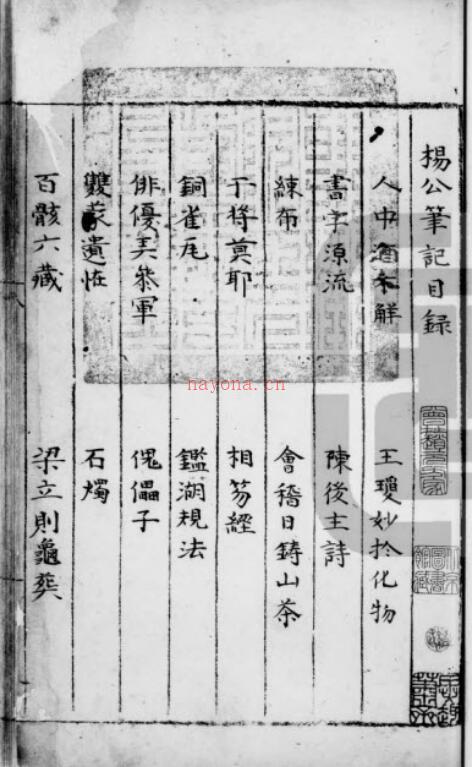 楊公筆記目録
人中酒未解　王瓊妙於化物
書字源流　陳後主詩
練布　會稽日鋳山茶
干将莫耶　相笏經
銅雀瓦　鑑湖規法
俳優美叅軍　傀儡子
雙　遺恠　石燭
百骸六藏　梁立則龜葬
hayona.cn